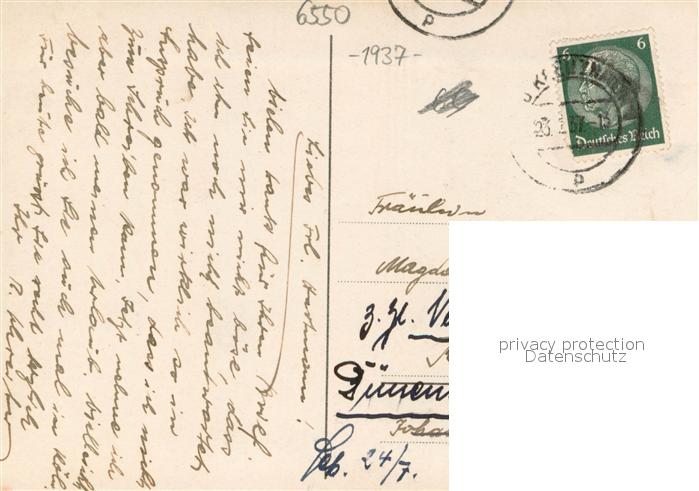 6550
-1937-
6 6
Deutsches Reich
23. 37
p
p
Liebes Frl. Hartmann!
Vielen Dank für Ihren Brief.
Seien Sie mir nicht böse, dass
ich ihn noch nicht beantwortet
habe. Ich war wirklich so in
Anspruch genommen, dass ich nicht
zum Schreiben kam. Jetzt nehme ich
aber bald meinen Urlaub. Vielleicht
besuche ich Sie auch mal in Köln.
Für heute grüsst Sie recht herzlich
Ihr
Fräulein
Magda
z. Zt.
Dünen
Joha
Geb. 24/7.
privacy protection
Datenschutz